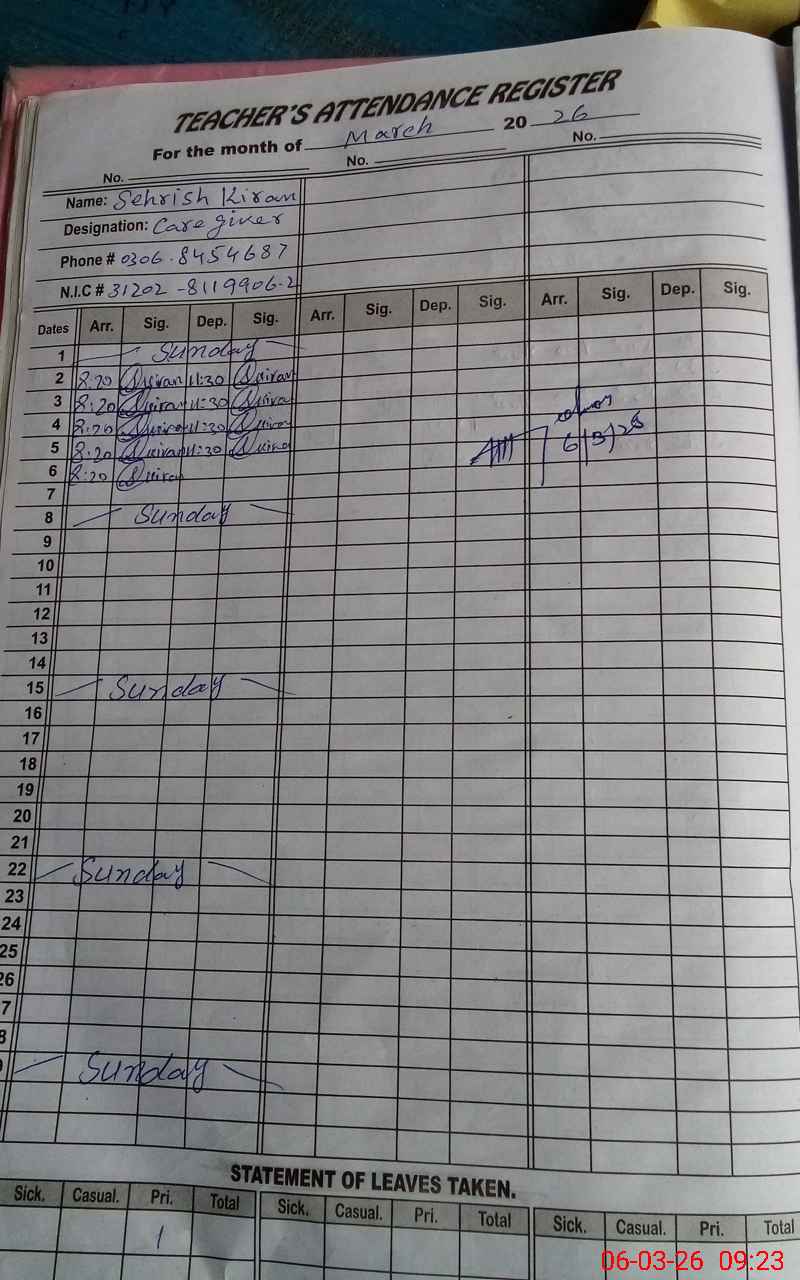 TEACHER'S ATTENDANCE REGISTER
For the month of March 20 26
No. No. No.
Name: Sehrish Kiran
Designation: Care giver
Phone # 0306-8454687
N.I.C # 31202-8119906-2
Dates Arr. Sig. Dep. Sig. Arr. Sig. Dep. Sig. Arr. Sig. Dep. Sig.
1 Sunday
2 8:20 Skiran 11:30 Skiran
3 8:20 Skiran 11:30 Skiran
4 8:20 Skiran 11:30 Skiran
5 8:20 Skiran 11:30 Skiran
6 8:20 Skiran
7
8 Sunday
9
10
11
12
13
14
15 Sunday
16
17
18
19
20
21
22 Sunday
23
24
25
26
7
8
Sunday
STATEMENT OF LEAVES TAKEN.
Sick. Casual. Pri. Total Sick. Casual. Pri. Total Sick. Casual. Pri. Total
1
06-03-26 09:23